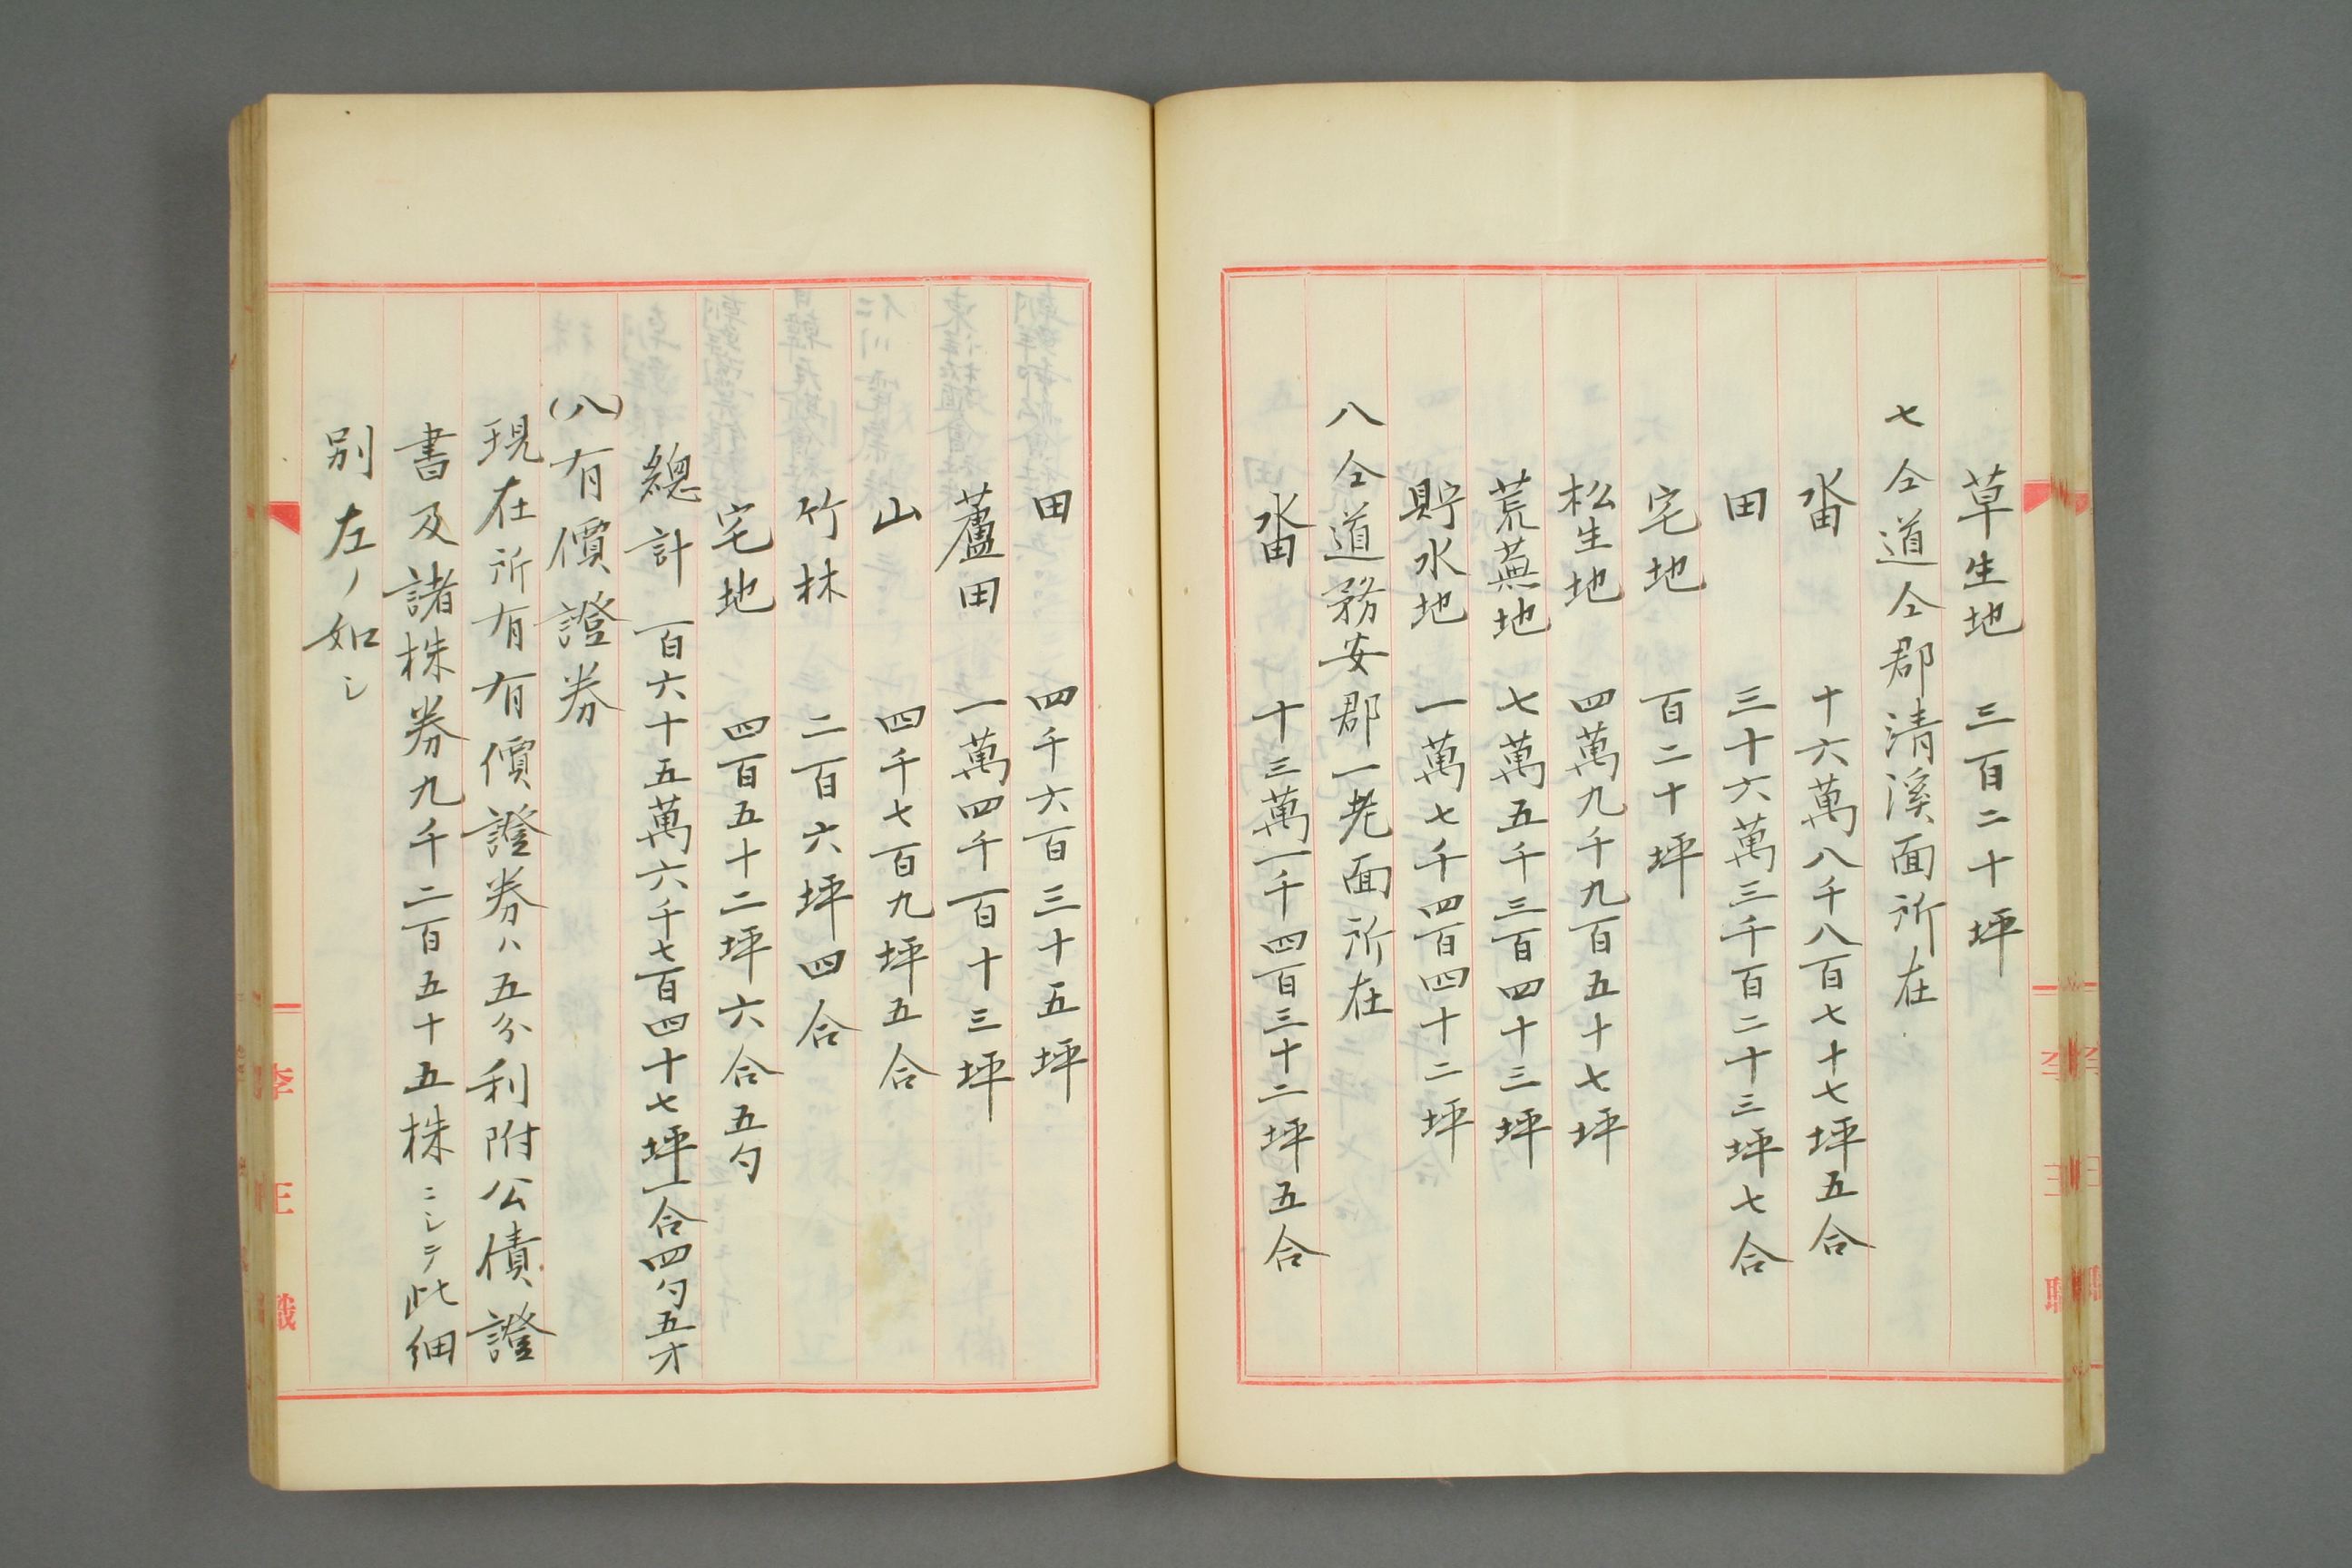 草生地 三百二十坪
七 仝道仝郡清溪面所在
畓 十六萬八千八百七十七坪五合
田 三十六萬三千百二十三坪七合
宅地 百二十坪
松生地 四萬九千九百五十七坪
荒蕪地 七萬五千三百四十三坪
貯水地 一萬七千四百四十二坪
八 仝道務安郡一老面所在
畓 十三萬一千四百三十二坪五合
田 四千六百三十五坪
蘆田 一萬四千百十三坪
山 四千七百九坪五合
竹林 二百六坪四合
宅地 四百五十二坪六合五勺
總計 百六十五萬六千七百四十七坪一合四勺五才
(八)有價證券
現在所有有價證券ハ五分利附公債證
書及諸株券九千二百五十五株ニシテ此細
別左ノ如シ
李王職